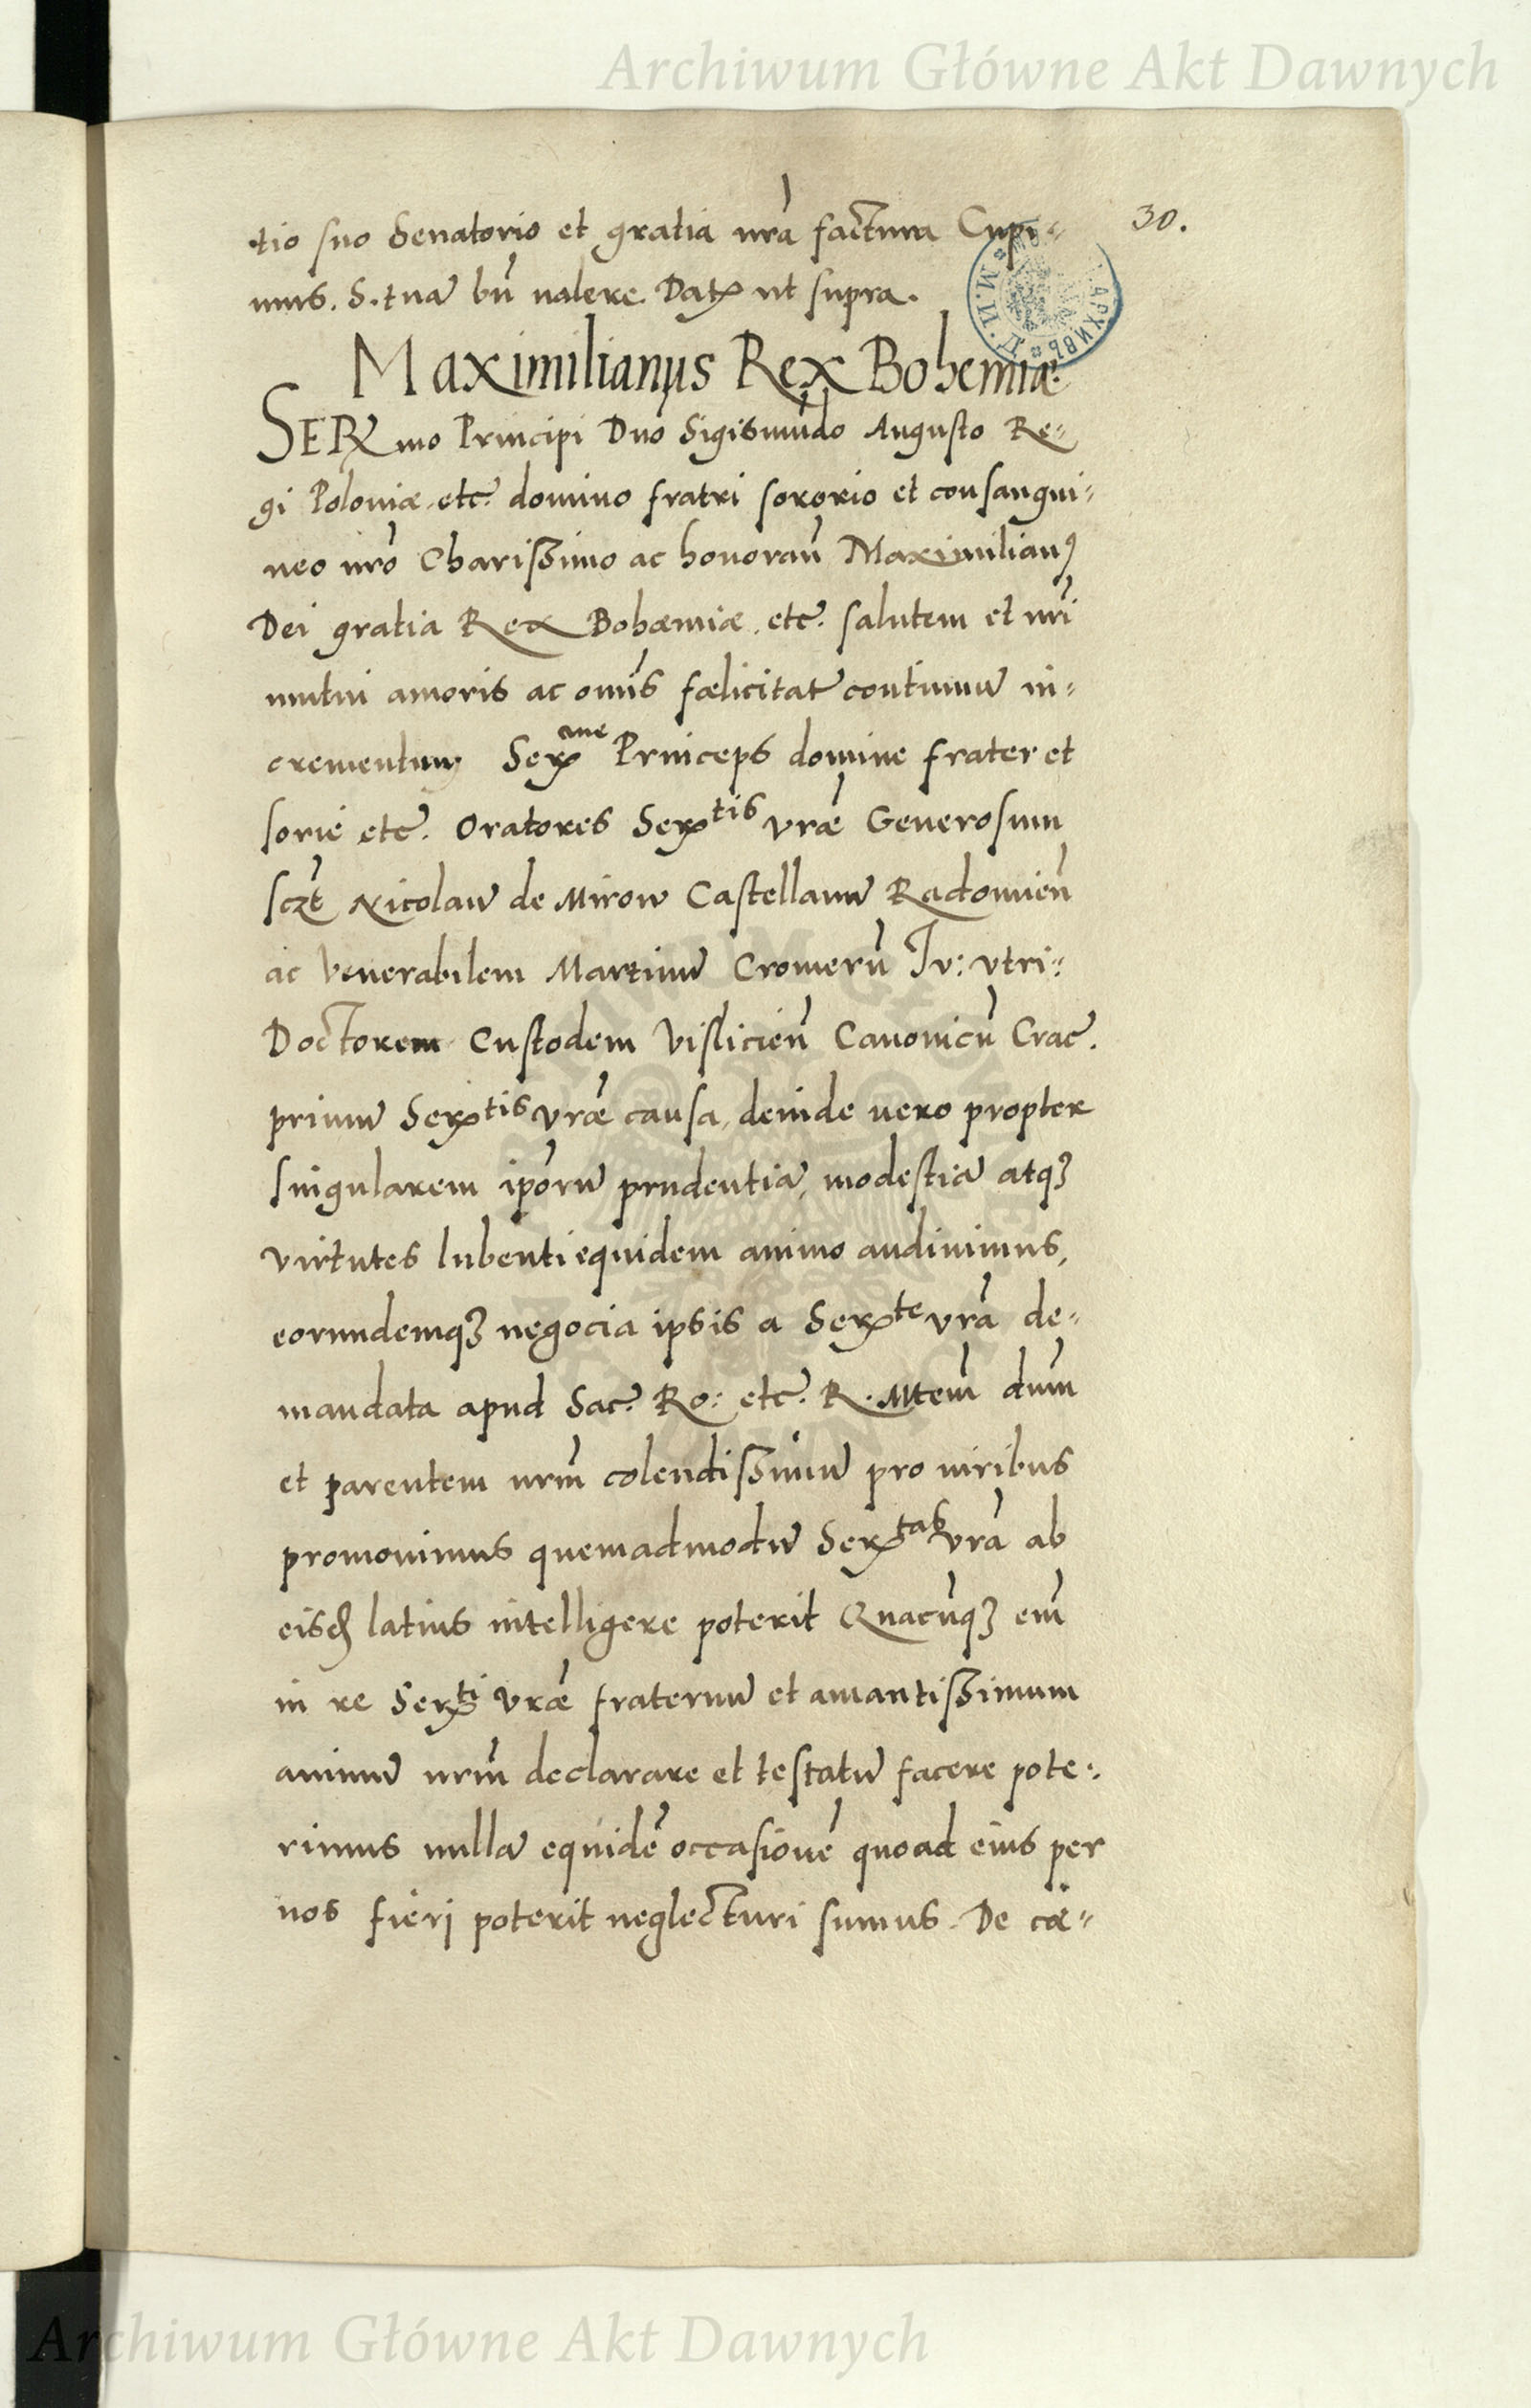 Archiwum Główne Akt Dawnych
30.
tio suo Senatorio et gratia nrã factura Cupi=
mus. S. tuã bñ ualere. Datx ut supra.
Maximilianus Rex Bohemiæ.
SERx mo Principi Dno Sigismũdo Augusto Re=
gi Poloniæ etc. domino fratri sororio et consangui=
neo nrõ Charissimo ac honorañ Maximilianꝰ
Dei gratia Rex Bohæmiæ. etc. salutem et nrĩ
mutui amoris ac omñs fœlicitat continuũ in=
crementum Serx me Princeps domine frater et
sorie etc. Oratores Serx tis vræ Generosum
sczt Nicolaũ de Mirow Castellanũ Radomieñ
ac Venerabilem Martinũ Cromerũ Iv: vtri=
Doctorem Custodem Vislicieñ Canonicũ Crac.
primũ Serx tis vræ causa, deinde uero propter
singularem ipõrũ prudentiã, modestiã atqꝫ
virtutes lubenti equidem animo audiuimus,
eorundemqꝫ negocia ipsis a Serx te vrã de=
mandata apud Sac. Ro: etc. R. Mtem̃ dum̃
et parentem nrm̃ colendissimũ pro uiribus
promouimus quemadmodũ Serx tas vrã ab
eisd latius intelligere poterit Quacũqꝫ em̃
in re Serx ti vræ fraternũ et amantissimum
animũ nrm̃ declarare et testatũ facere pote=
rimus nullã equidẽ occasionẽ quoad eius per
nos fieri poterit neglecturi sumus. De cæ=
Archiwum Główne Akt Dawnych